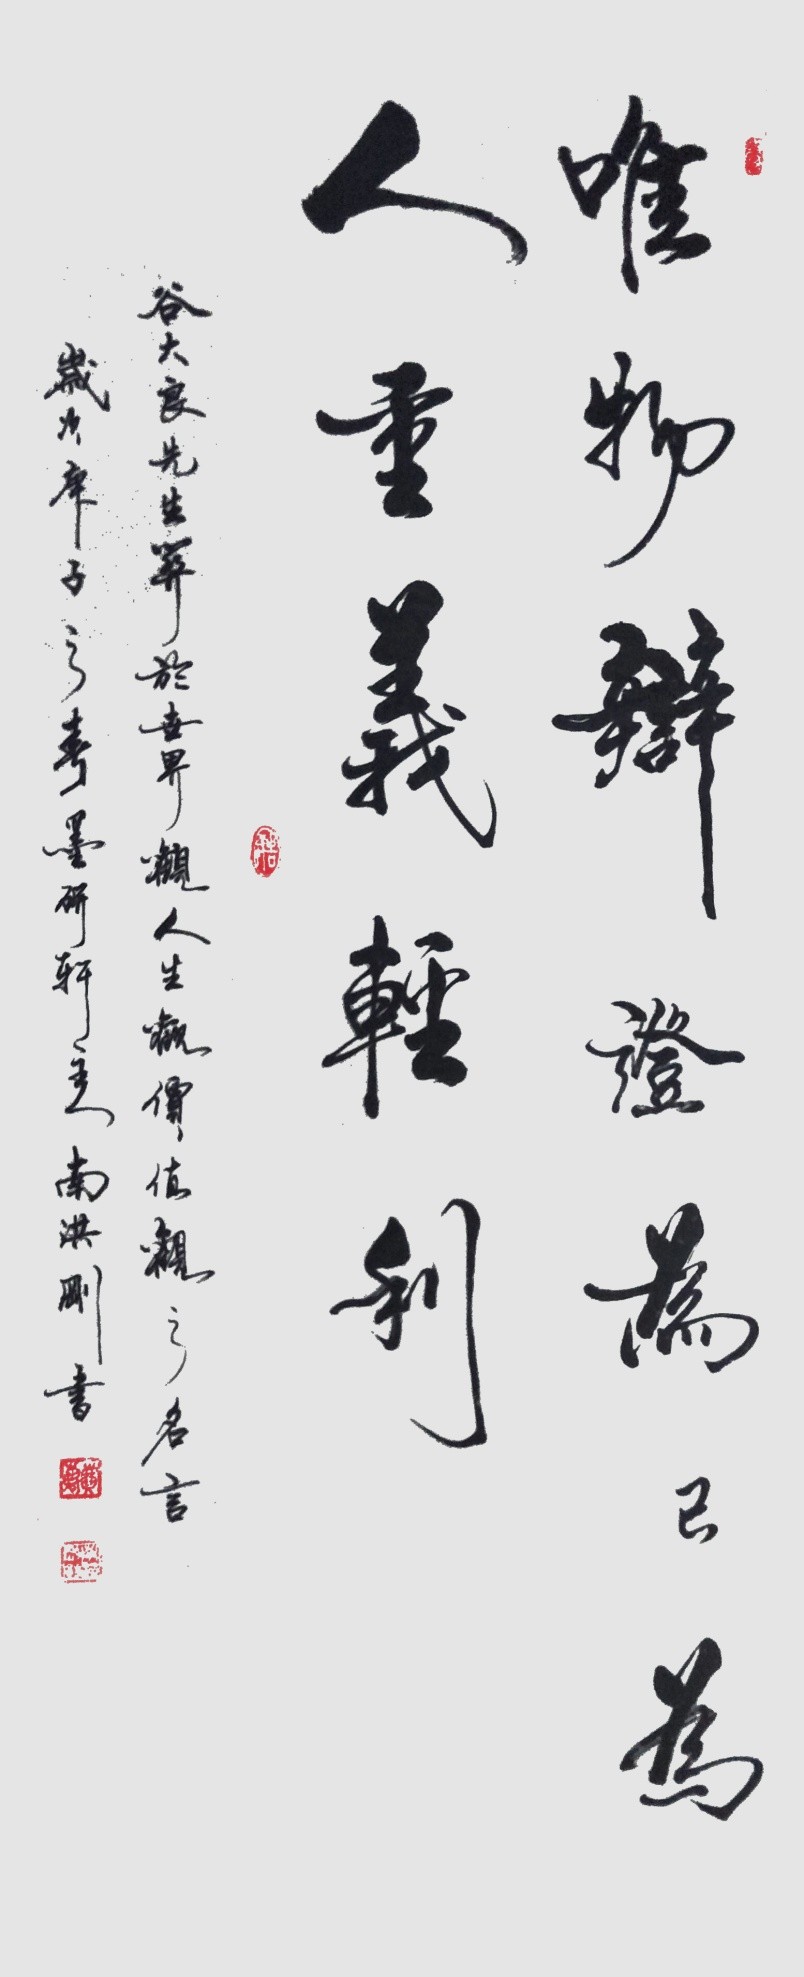 唯物辯證為己為
人重義輕利
谷大良先生算於世界觀人生觀價值觀之名言
歲次庚子之春墨研軒主南洪剛書